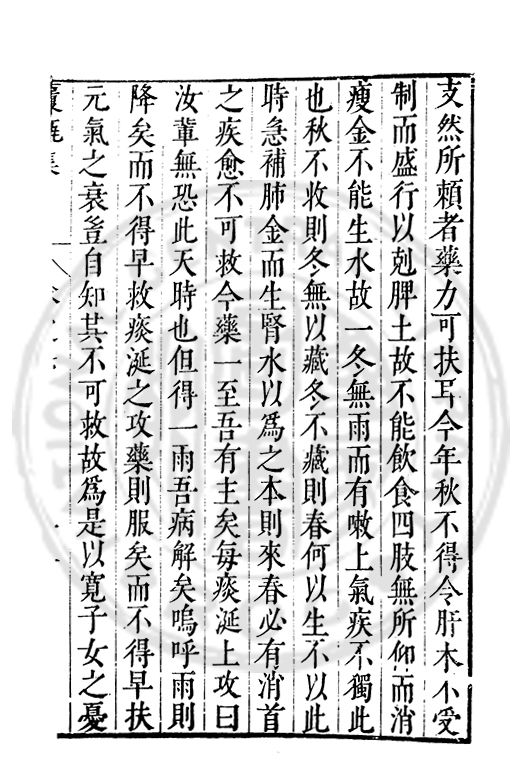 支然所頼者藥力可扶耳今年秋不得令肝木不受
制而盛行以剋脾土故不能飲食四肢無所仰而消
瘦金不能生水故一冬無雨而有嗽上氣疾不獨此
也秋不收則冬無以藏冬不藏則春何以生不以此
時急補肺金而生腎水以爲之本則來春必有消首
之疾愈不可救今藥一至吾有主矣每痰涎上攻曰
汝輩無恐此天時也但得一雨吾病解矣嗚呼雨則
降矣而不得早救痰涎之攻藥則服矣而不得早扶
元氣之衰豈自知其不可救故爲是以寬子女之憂